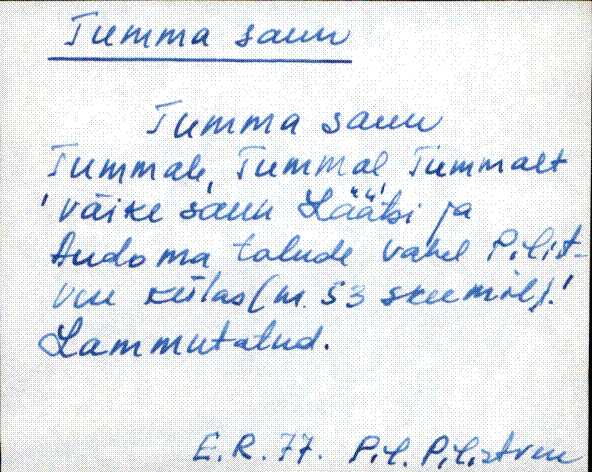 Tumma saun
Tumma saun
Tummale, Tummal Tummalt
'väike saun Läätsi ja
Andoma talude vahel Pilist-
vere külas (nr. 53 skeemil).'
Lammutatud.
E.R. 77. Pil. Pilistvere